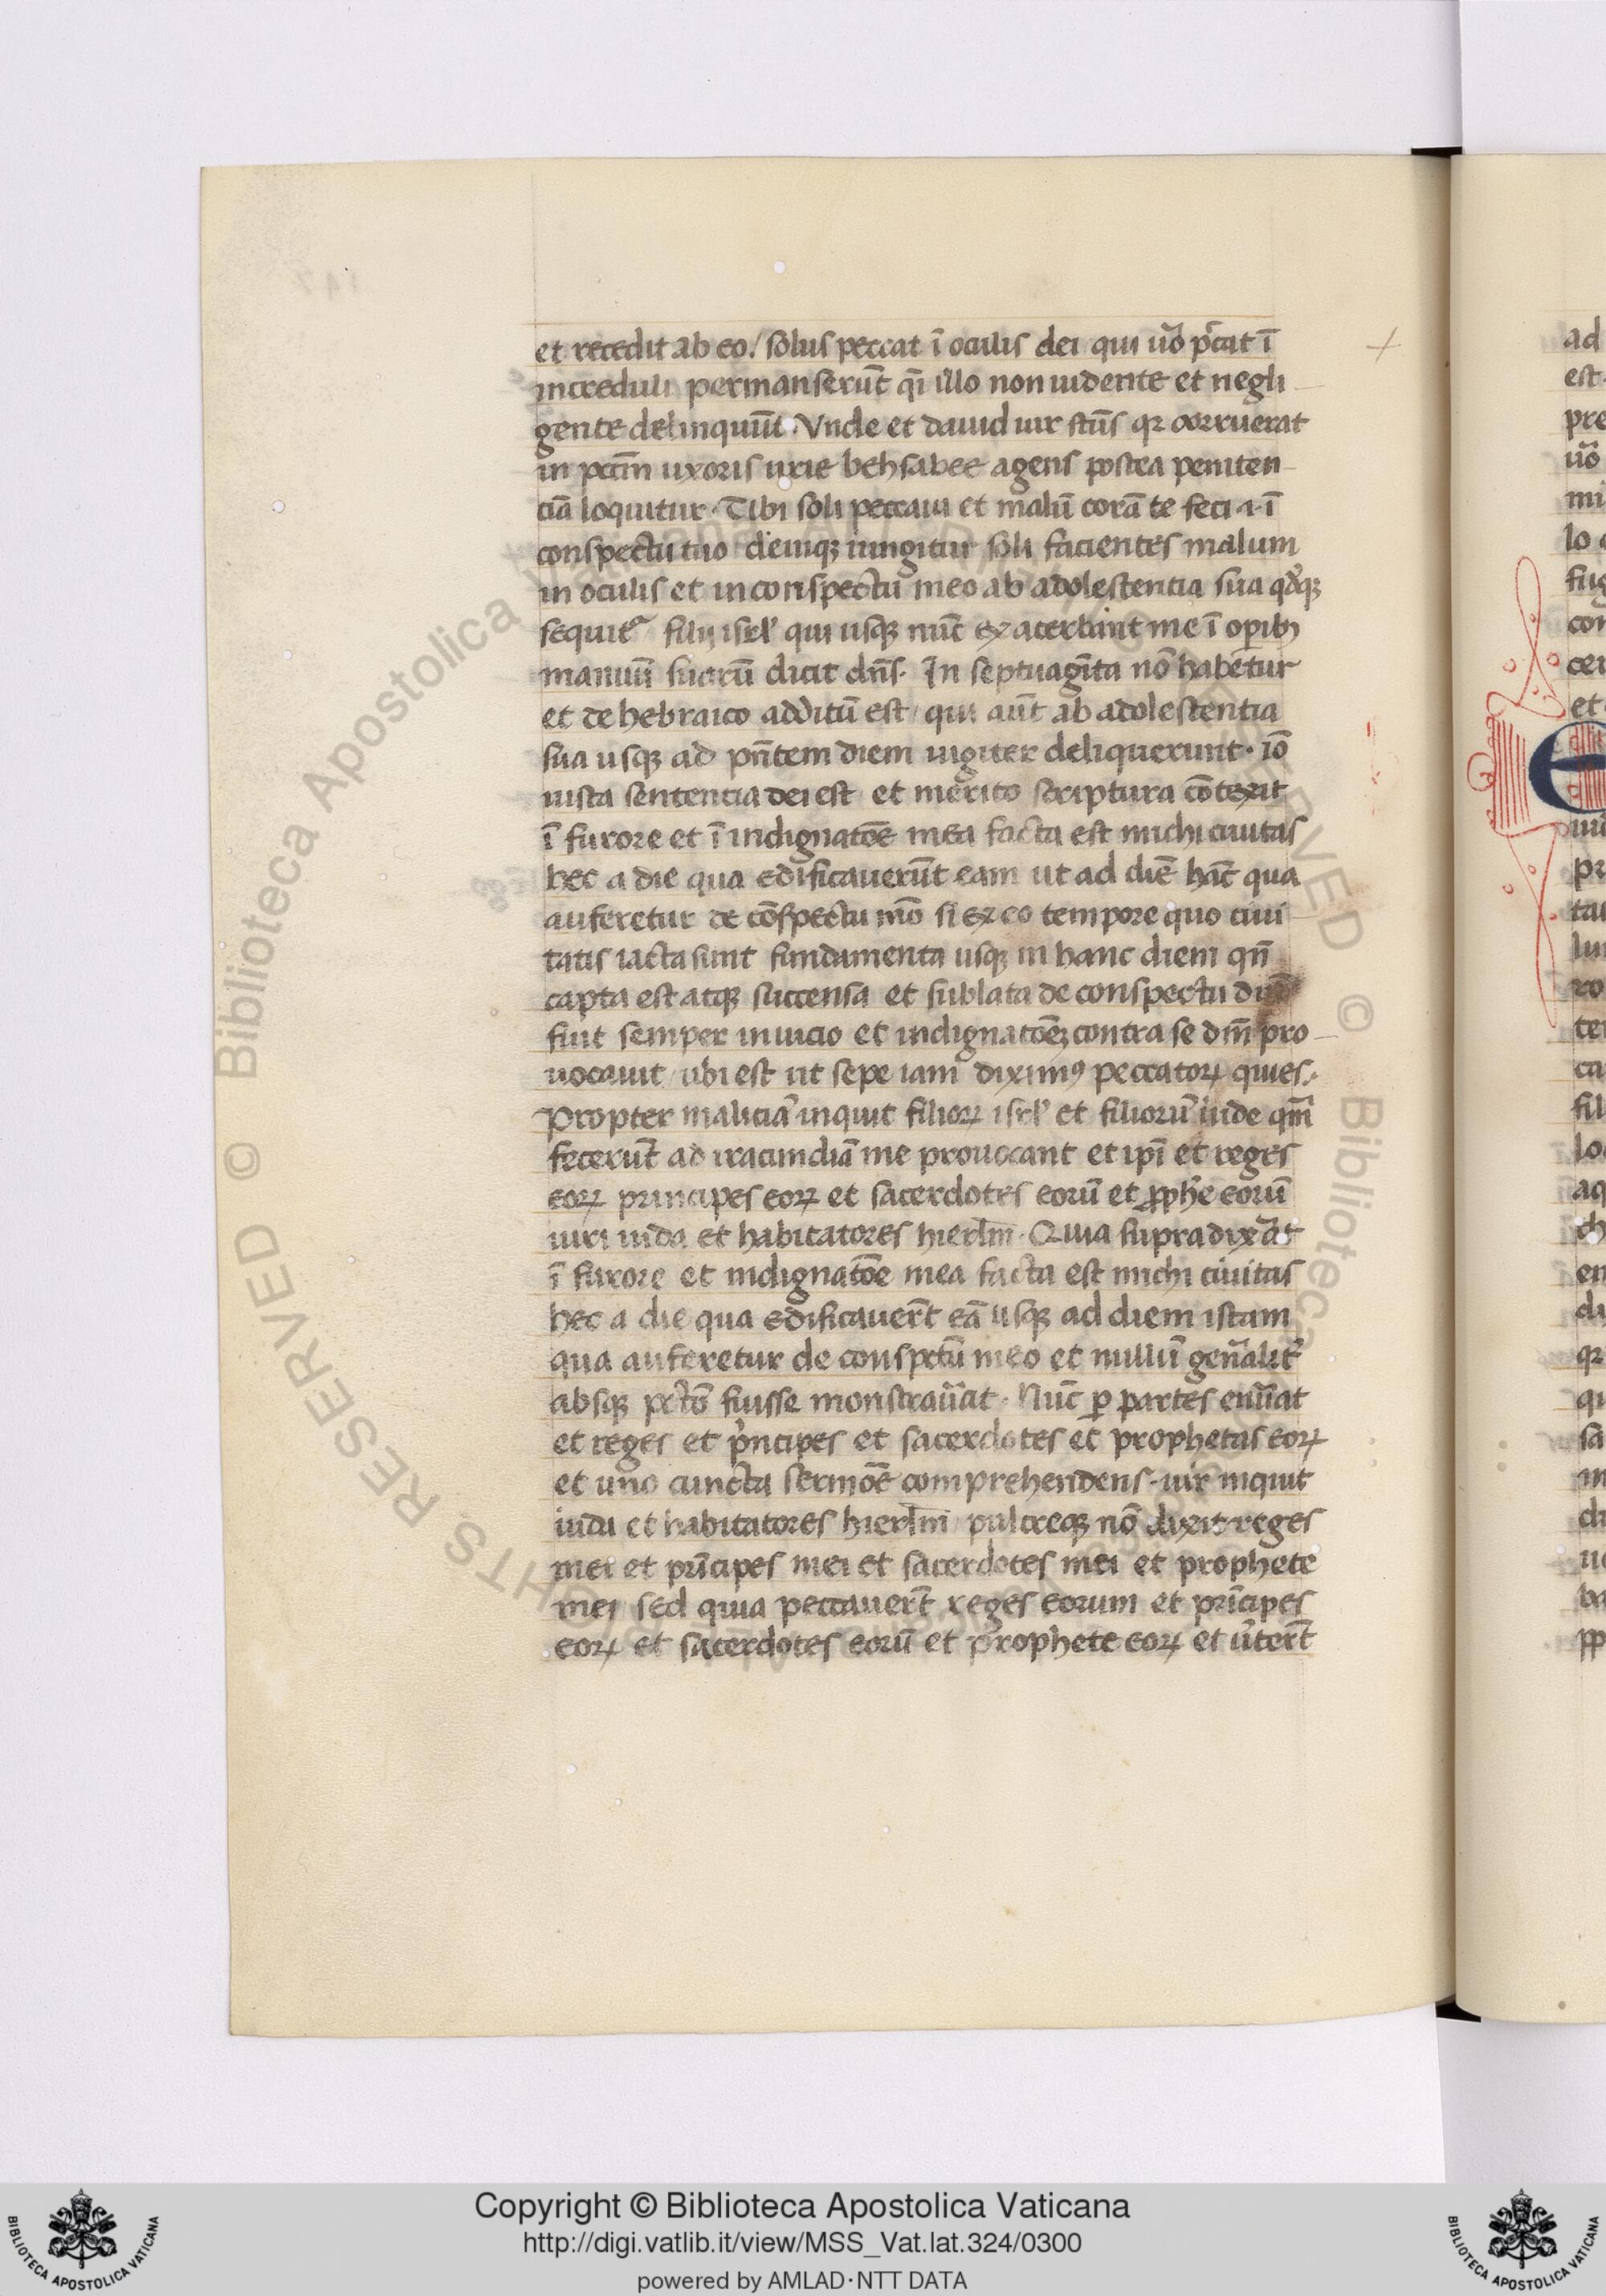 et recedit ab eo / solus peccat ī oculis dei qui ūo pͨcat ī
increduli permanserūt qī illo non uidente et negli
gente delinquūt. Vnde et dauid uir sc̄us qz corruerat
in pccm̄ uxoris urie behsabee agens postea peniten
ciā loquitur. Tibi soli peccaui et malū corā te feci .i. ī
conspectu tuo deniqz iungitur soli facientes malum
in oculis et in conspectu meo ab adolescentia sua
sequit᷑ filij isrl̄ qui usqz nūc exacerbant me ī opib;
manuū suarū dicit dn̄s. In septuagīta nō habetur
et de hebraico additū est / qui aūt ab adolescentia
sua usqz ad pn̄tem diem iugiter deliquerunt. iō
iusta sententia dei est et merito scriptura cōtexit
ī furore et ī indignatōe mea facta est michi ciuitas
hec a die qua edificauerūt eam ut ad diē hāc qua
auferetur de cōspectu mō si ex eo tempore quo ciui
tatis iacta sunt fundamenta usqz in hanc diem qn̄
capta est atqz succensa et sublata de conspectu
fuit semper in uicio et indignatōez contra se dm̄ pro
uocauit / ubi est ut sepe iam diximꝰ peccatoꝝ quies.
Propter maliciā inquit filioꝝ isrl̄ et filiorū iude qm̄
fecerūt ad iracundiā me prouocant et ip̄i et reges
eoꝝ principes eoꝝ et sacerdotes eorū et ꝓph̄e eorū
uiri iuda et habitatores hierl̄m. Quia supra dixāt
ī furore et indignatōe mea facta est michi ciuitas
hec a die qua edificauer̄t eā usqz ad diem istam
qua auferetur de conspctū meo et nullū gen̄alit᷑
absqz pctō fuisse monstraūat. Nūc ꝑ partes enūat
et reges et pⁱncipes et sacerdotes et prophetas eoꝝ
et uno cuncta sermōe comprehendens. uir inquit
iuda et habitatores hierl̄m pulcreqz nō dixit reges
mei et prīcipes mei et sacerdotes mei et prophete
mei sed quia peccauer̄t reges eorum et prīcipes
eoꝝ et sacerdotes eorū et prophete eoꝝ et ūter̄t
Copyright © Biblioteca Apostolica Vaticana
http://digi.vatlib.it/view/MSS_Vat.lat.324/0300
powered by AMLAD·NTT DATA